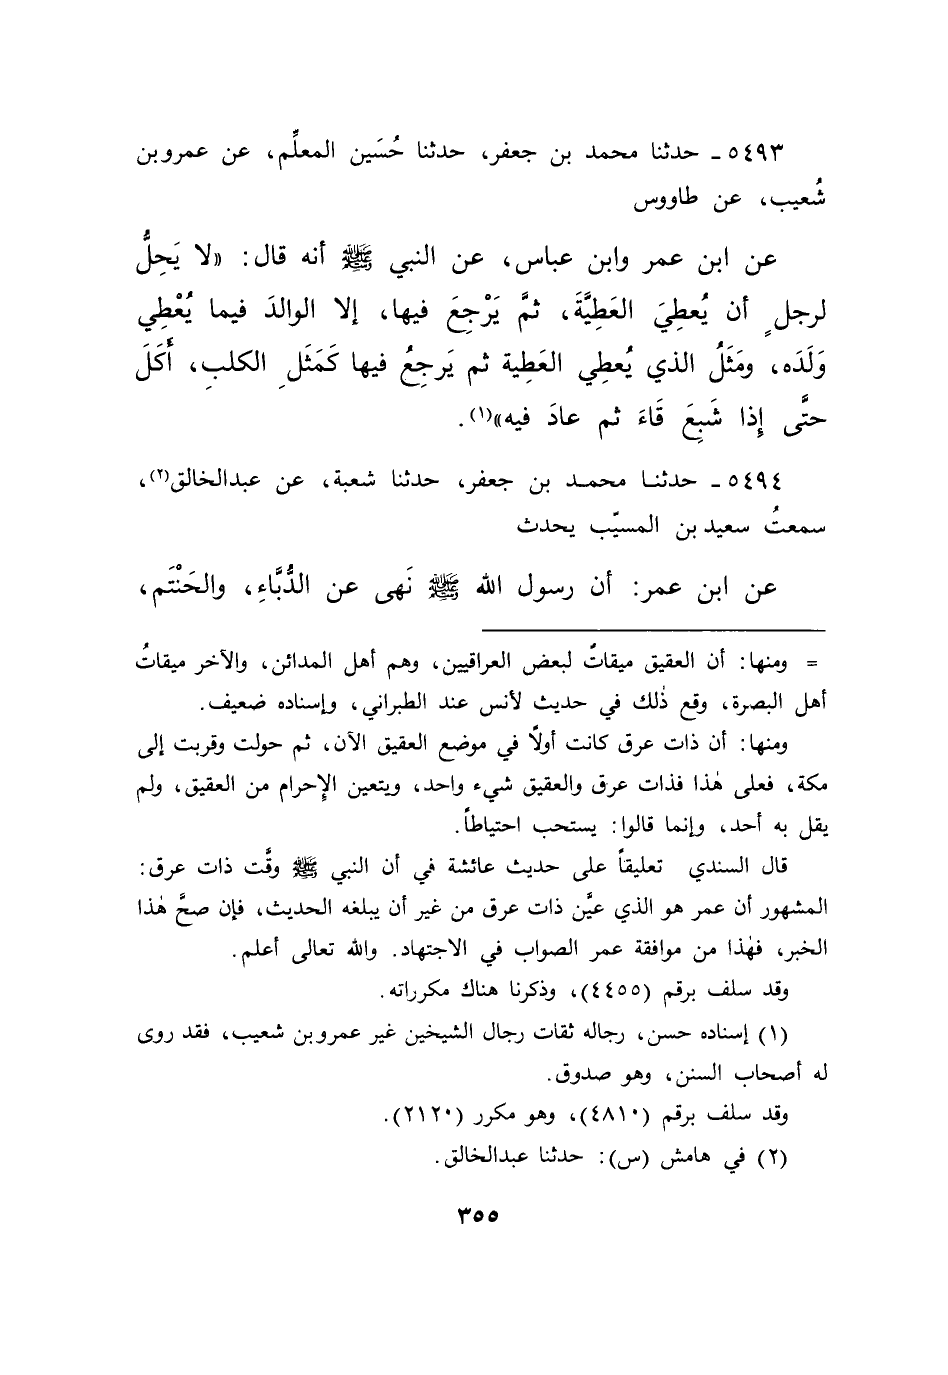 ٥٤٩٣ ـ حدثنا محمد بن جعفر، حدثنا حُسَين المعلِّم، عن عمرو بن
شُعيب، عن طاووس
عن ابن عمر وابن عباس، عن النبي ﷺ أنه قال: «لا يَحِلُّ
لرجلٍ أن يُعطِيَ العَطِيَّةَ، ثمَّ يَرْجِعَ فيها، إلا الوالدَ فيما يُعْطِي
وَلَدَه، ومَثَلُ الذي يُعطِي العَطِية ثم يَرجِعُ فيها كَمَثَلِ الكلبِ، أَكَلَ
حتَّى إِذا شَبِعَ قَاءَ ثم عادَ فيه»(١).
٥٤٩٤ ـ حدثنا محمد بن جعفر، حدثنا شعبة، عن عبدالخالق(٢)،
سمعتُ سعيد بن المسيّب يحدث
عن ابن عمر: أن رسول الله ﷺ نَهى عن الدُّبَّاءِ، والحَنْتَم،
= ومنها: أن العقيق ميقاتٌ لبعض العراقيين، وهم أهل المدائن، والآخر ميقاتُ
أهل البصرة، وقع ذٰلك في حديث لأنس عند الطبراني، وإسناده ضعيف.
ومنها: أن ذات عرق كانت أولاً في موضع العقيق الآن، ثم حولت وقربت إلى
مكة، فعلى هٰذا فذات عرق والعقيق شيء واحد، ويتعين الإحرام من العقيق، ولم
يقل به أحد، وإنما قالوا: يستحب احتياطاً.
قال السندي تعليقاً على حديث عائشة في أن النبي ﷺ وقَّت ذات عرق:
المشهور أن عمر هو الذي عيَّن ذات عرق من غير أن يبلغه الحديث، فإن صحَّ هٰذا
الخبر، فهٰذا من موافقة عمر الصواب في الاجتهاد. والله تعالى أعلم.
وقد سلف برقم (٤٤٥٥)، وذكرنا هناك مكرراته.
(١) إسناده حسن، رجاله ثقات رجال الشيخين غير عمرو بن شعيب، فقد روى
له أصحاب السنن، وهو صدوق.
وقد سلف برقم (٤٨١٠)، وهو مكرر (٢١٢٠).
(٢) في هامش (س): حدثنا عبدالخالق.
٣٥٥